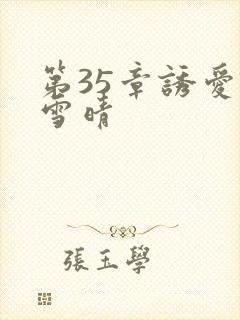 第35章誘愛
雪晴
張玉學